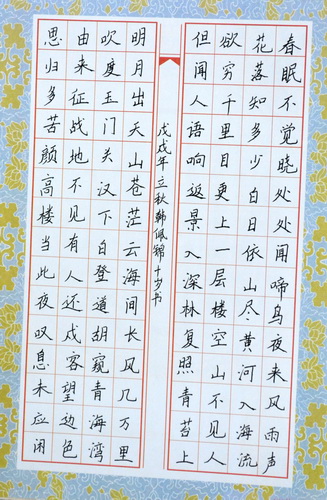 春眠不觉晓处处闻啼鸟夜来风雨声
花落知多少白日依山尽黄河入海流
欲穷千里目更上一层楼空山不见人
但闻人语响返景入深林复照青苔上
戊戌年立秋韩佩锦十岁书
明月出天山苍茫云海间长风几万里
吹度玉门关汉下白登道胡窥青海湾
由来征战地不见有人还戍客望边色
思归多苦颜高楼当此夜叹息未应闲